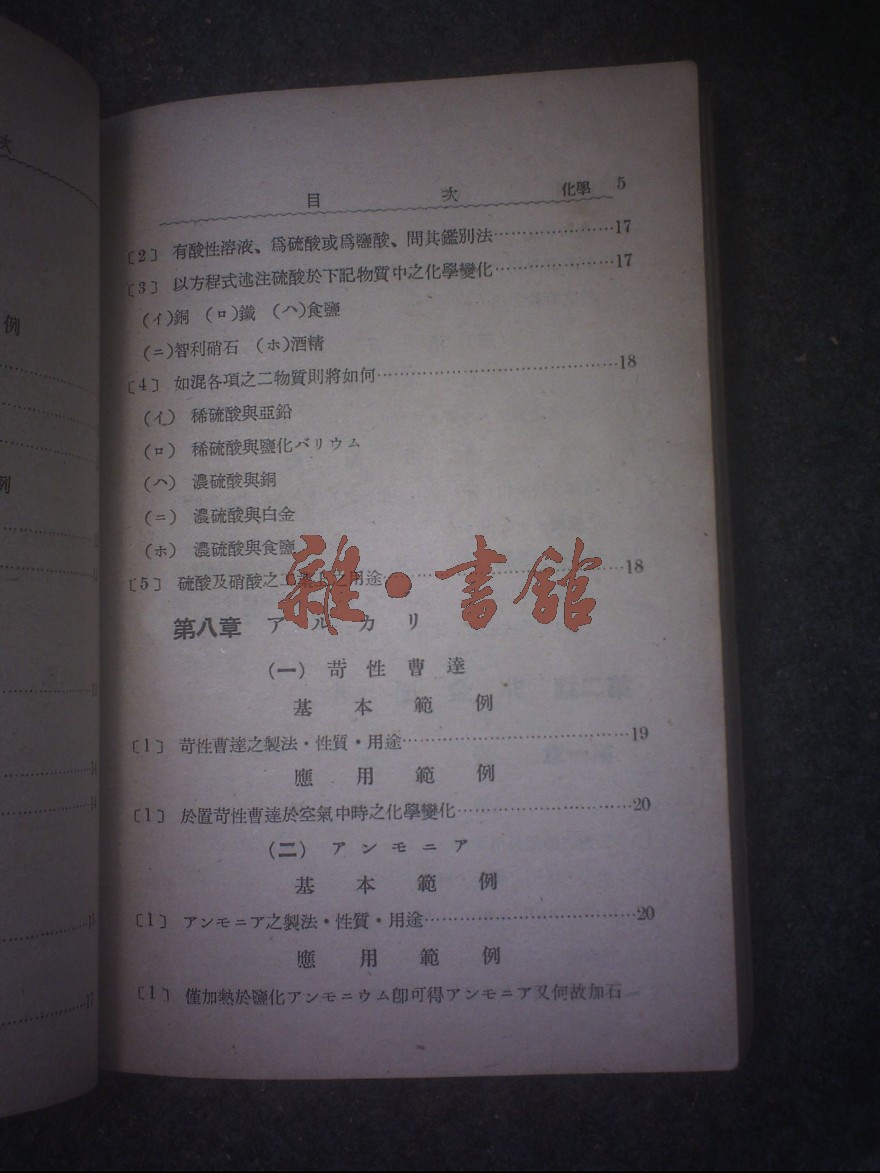 目 次 化學 5
〔2〕 有酸性溶液、爲硫酸或爲鹽酸、問其鑑別法……………………17
〔3〕 以方程式述注硫酸於下記物質中之化學變化……………………17
(イ)銅 (ロ)鐵 (ハ)食鹽
(ニ)智利硝石 (ホ)酒精
〔4〕 如混各項之二物質則將如何……………………18
(イ) 稀硫酸與亞鉛
(ロ) 稀硫酸與鹽化バリウム
(ハ) 濃硫酸與銅
(ニ) 濃硫酸與白金
(ホ) 濃硫酸與食鹽
〔5〕 硫酸及硝酸之工業上之用途……………………18
雜·書館
第八章 アルカリ
(一) 苛性曹達
基本範例
〔1〕 苛性曹達之製法·性質·用途……………………19
應用範例
〔1〕 於置苛性曹達於空氣中時之化學變化……………………20
(二) アンモニア
基本範例
〔1〕 アンモニア之製法·性質·用途……………………20
應用範例
〔1〕 僅加熱於鹽化アンモニウム卽可得アンモニア又何故加石
次
例
例
14
14
17